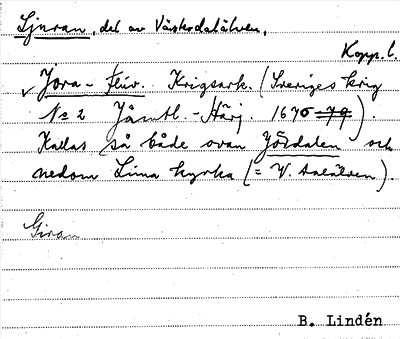 Ljuran, del av Västerdalälven,
Kopp. l.
✓ Jora - Fluv. Krigsark. (Sveriges krig
No 2 Jämtl. - Härj. 1676-79).
Kallas så både ovan Jördalen och
nedom Lima kyrka (= V. Dalälven).
Giran
B. Lindén